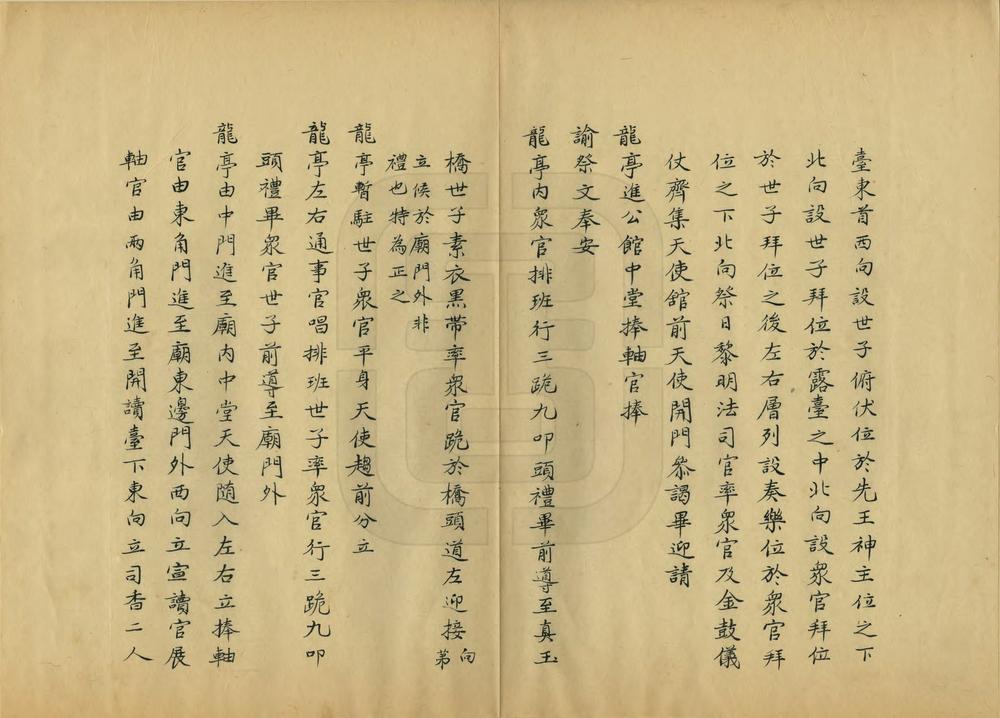 臺東首西向設世子俯伏位於先王神主位之下
北向設世子拜位於露臺之中北向設衆官拜位
於世子拜位之後左右層列設奏樂位於衆官拜
位之下北向祭日黎明法司官率衆官及金鼓儀
仗齊集天使館前天使開門叅謁畢迎請
龍亭進公館中堂捧軸官捧
諭祭文奉安
龍亭內衆官排班行三跪九叩頭禮畢前導至真玉
橋世子素衣黑帶率衆官跪於橋頭道左迎接向
第
立候於廟門外非
禮也特為正之
龍亭暫駐世子衆官平身天使趨前分立
龍亭左右通事官唱排班世子率衆官行三跪九叩
頭禮畢衆官世子前導至廟門外
龍亭由中門進至廟內中堂天使隨入左右立捧軸
官由東角門進至廟東邊門外西向立宣讀官展
軸官由兩角門進至開讀臺下東向立司香二人